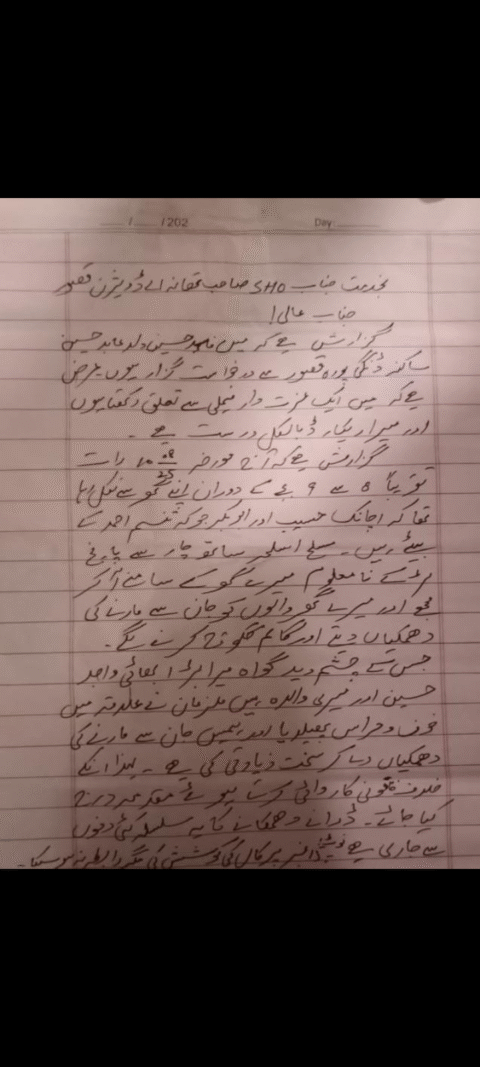 / /202 Day:
بخدمت جناب SHO صاحب تھانہ اے ڈویژن قصور
جناب عالی!
گزارش ہے کہ میں حسین ولد عابد حسین
ساکنہ پورہ قصور سے درخواست گزار ہوں عرض
ہے کہ میں ایک عزت دار فیملی سے تعلق رکھتا ہوں
اور میرا ریکارڈ بالکل درست ہے۔
گزارش ہے کہ آج مورخہ رات
تقریباً 8 سے 9 بجے کے دوران اپنے گھر سے نکل رہا
تھا کہ اچانک حسیب اور ابوبکر جو کہ احمد کے
بیٹے ہیں۔ مسلح اسلحہ ساتھ چار سے پانچ
لڑکے نامعلوم میرے گھر کے سامنے آ کر
مجھ اور میرے گھر والوں کو جان سے مارنے کی
دھمکیاں دیتے اور گالم گلوچ کرنے لگے۔
جس کے چشم دید گواہ میرا بڑا بھائی واجد
حسین اور میری والدہ ہیں ملزمان نے علاقہ میں
خوف و حراس پھیلایا اور ہمیں جان سے مارنے کی
دھمکیاں دے کر سخت زیادتی کی ہے۔ لہذا انکے
خلاف قانونی کاروائی کرتے ہوئے مقدمہ درج
کیا جائے۔ ڈرانے دھمکانے کا یہ سلسلہ کئی دنوں
سے جاری ہے پر کال کی کوشش کی مگر رابطہ نہ ہو سکا۔